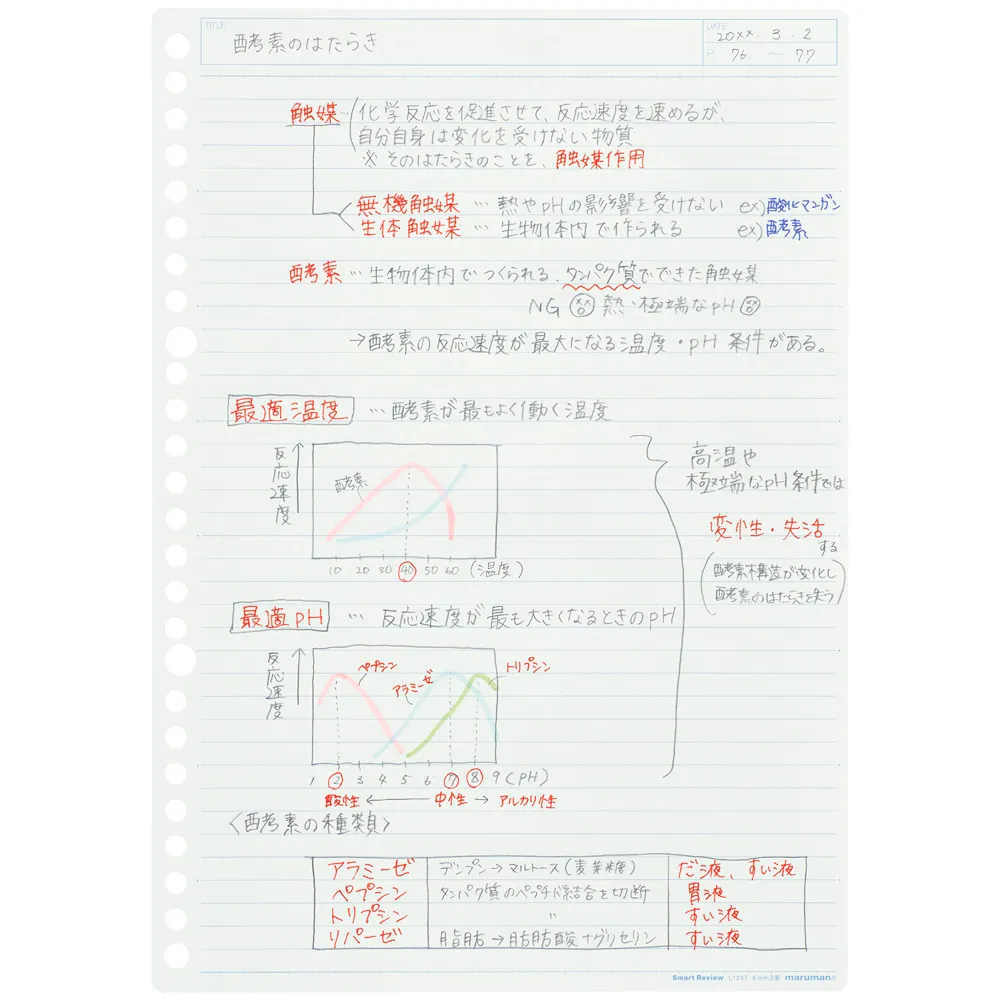 TITLE
酵素のはたらき
DATE 20××. 3. 2
P. 76 〜 77
触媒…化学反応を促進させて、反応速度を速めるが、
自分自身は変化を受けない物質
※ そのはたらきのことを、触媒作用
無機触媒 … 熱やpHの影響を受けない ex)酸化マンガン
生体触媒 … 生物体内で作られる ex)酵素
酵素…生物体内でつくられる、タンパク質でできた触媒
NG 熱・極端なpH
→酵素の反応速度が最大になる温度・pH 条件がある。
最適温度 … 酵素が最もよく働く温度
反応速度
酵素
10 20 30 40 50 60 (温度)
高温や
極端なpH条件では
変性・失活
する
(酵素構造が変化し
酵素のはたらきを失う)
最適pH … 反応速度が最も大きくなるときのpH
反応速度
ペプシン
アラミーゼ
トリプシン
1 2 3 4 5 6 7 8 9 (PH)
酸性 ← 中性 → アルカリ性
〈酵素の種類〉
アラミーゼ デンプン→マルトース(麦芽糖) だ液、すい液
ペプシン タンパク質のペプチド結合を切断 胃液
トリプシン 〃 すい液
リパーゼ 脂肪→脂肪酸+グリセリン すい液
Smart Review L1247 6mm maruman